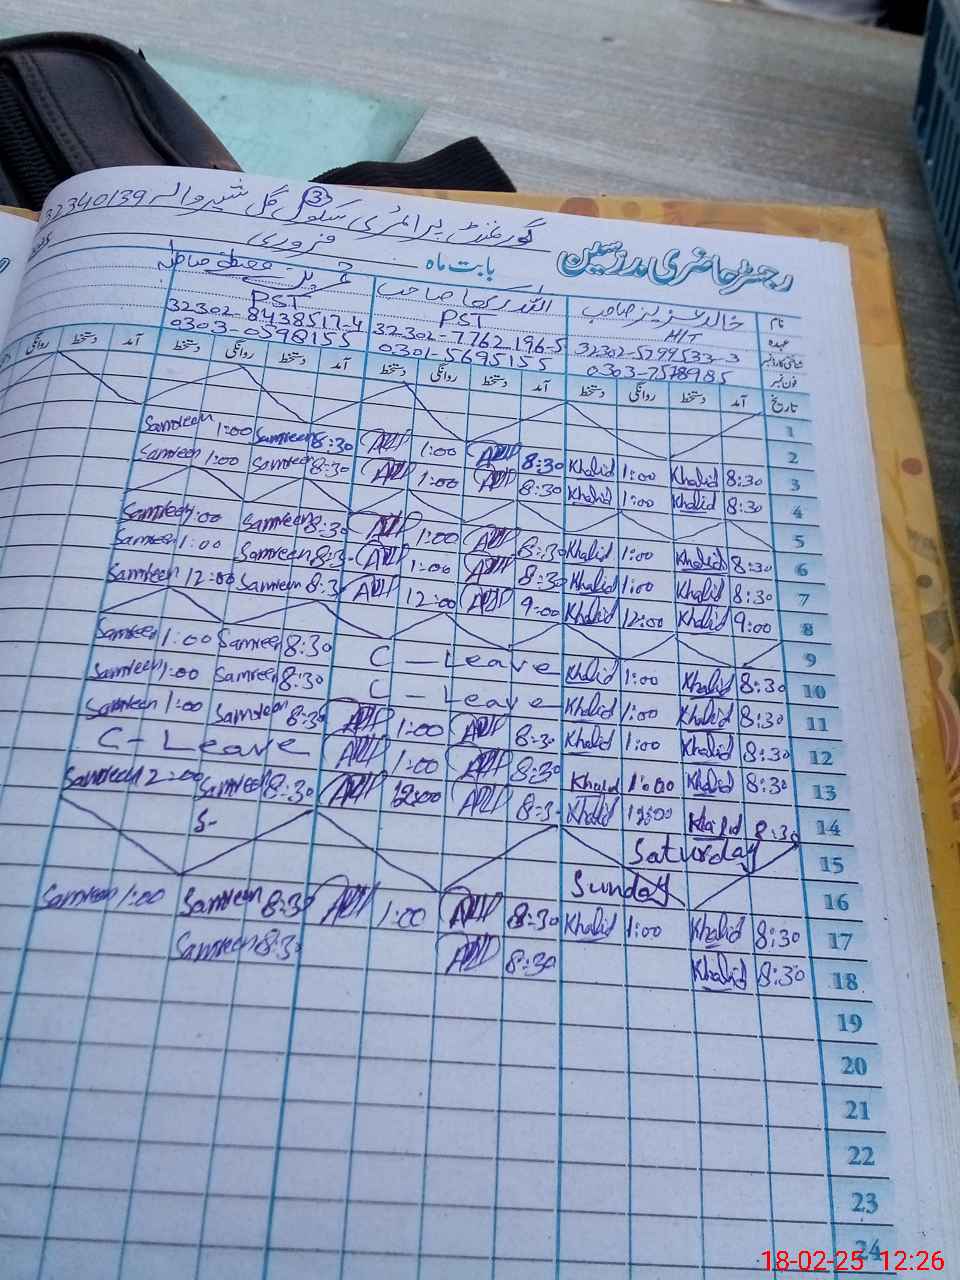 گورنمنٹ پرائمری سکول گل شیر والہ 32340139
3
رجسٹر حاضری مدرسین بابت ماہ فروری
نام خالد عزیز صاحب
عہدہ H/T PST PST
شناختی کارڈ نمبر 32302-7762196-5 32302-8438517-4
فون نمبر 0301-5695155 0303-0598155
تاریخ آمد دستخط روانگی دستخط آمد دستخط روانگی دستخط آمد دستخط روانگی دستخط آمد دستخط روانگی
1
2
3 8:30 Khalid 1:00 Khalid 8:30 1:00 8:30 Samreen 1:00 Samreen
4 8:30 Khalid 1:00 Khalid 8:30 1:00 8:30 Samreen 1:00 Samreen
5
6 8:30 Khalid 1:00 Khalid 8:30 1:00 8:30 Samreen 1:00 Samreen
7 8:30 Khalid 1:00 Khalid 8:30 1:00 8:3 Samreen 1:00 Samreen
8 9:00 Khalid 12:00 Khalid 9:00 12:00 8:3 Samreen 12:00 Samreen
9
10 8:30 Khalid 1:00 Khalid C-Leave 8:30 Samreen 1:00 Samreen
11 8:30 Khalid 1:00 Khalid C-Leave 8:30 Samreen 1:00 Samreen
12 8:30 Khalid 1:00 Khalid 8:30 1:00 8:30 Samreen 1:00 Samreen
13 8:30 Khalid 1:00 Khalid 8:30 1:00 C-Leave
14 8:30 Khalid Khalid 8:3 12:00 8:30 Samreen 12:00 Samreen
15 Saturday S-
16 Sunday
17 8:30 Khalid 1:00 Khalid 8:30 1:00 8:30 Samreen 1:00 Samreen
18 8:30 Khalid 8:30 8:30 Samreen
19
20
21
22
23
24
18-02-25 12:26